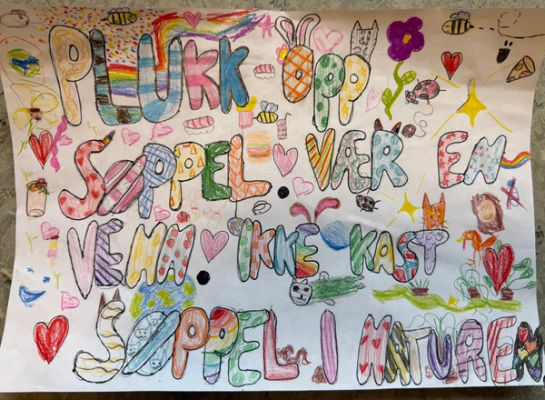 PLUKK OPP
SØPPEL. VÆR EN
VENN. IKKE KAST
SØPPEL I NATUREN